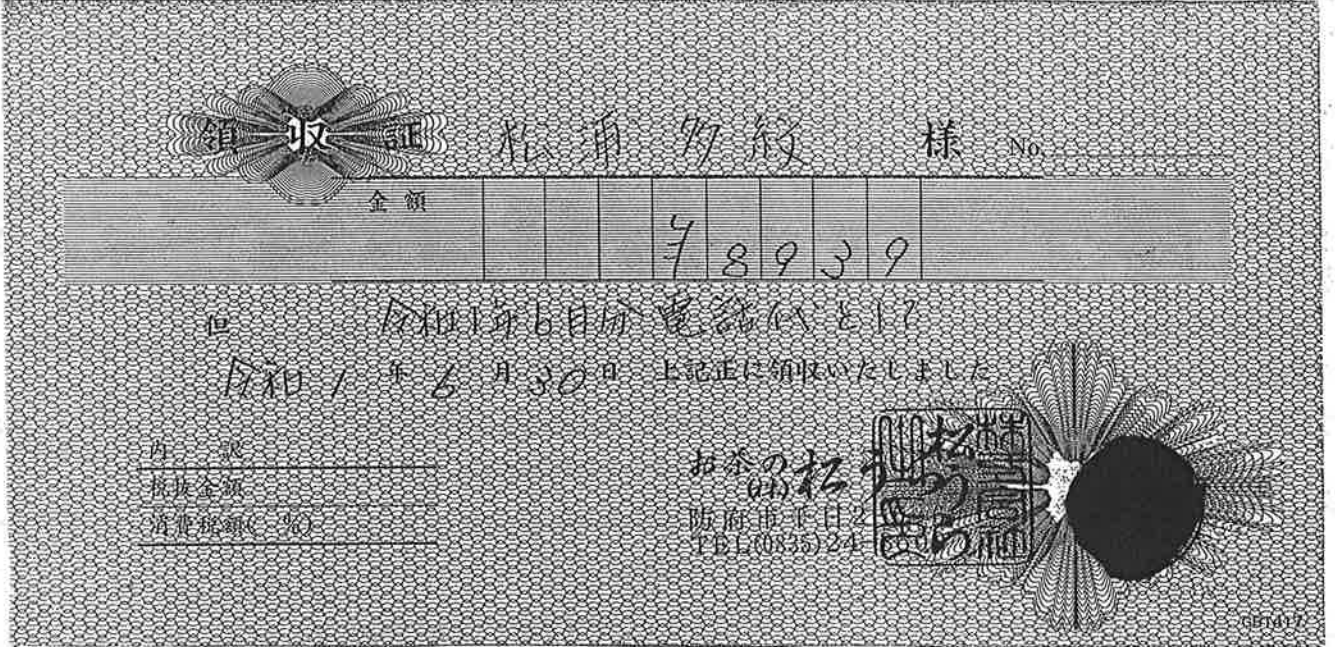 領収証 松浦多紋 様 No.
金額 ¥8939
但 令和1年6月分電話代として
令和1年6月30日 上記正に領収いたしました
内訳
税抜金額
消費税額( %)
お茶の
防府市千日2
TEL(0835)24
GB1417